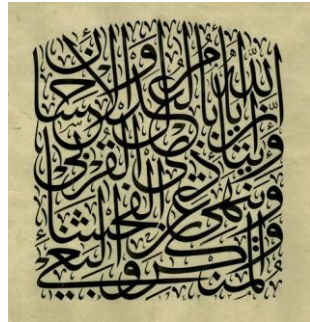 إن الله يأمر بالعدل والإحسان
وإيتاء ذي القربى
وينهى عن الفحشاء
والمنكر والبغي